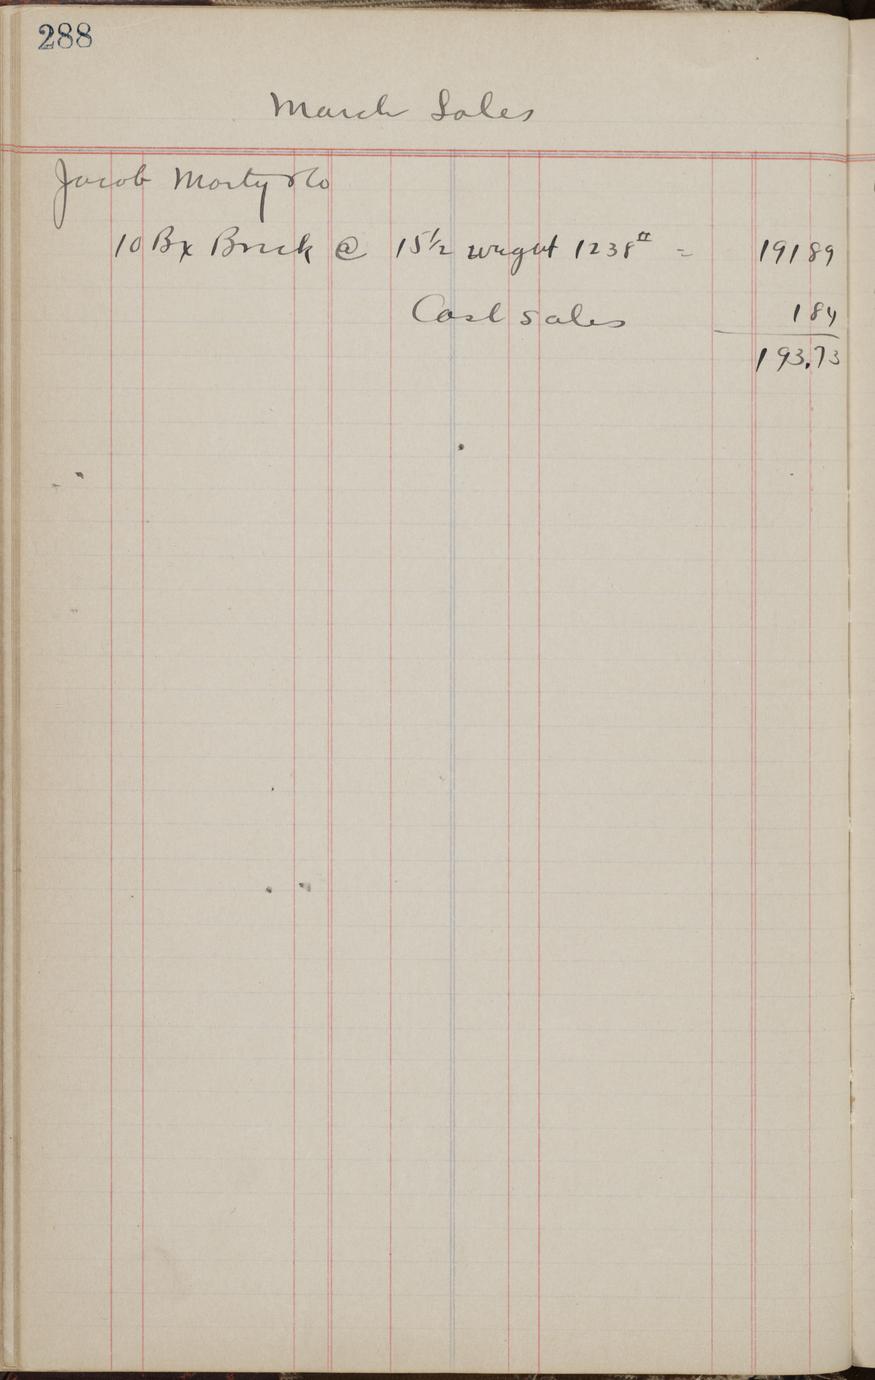 288
March Sales
Jacob Marty & Co
10 Bx Brick @ 15 1/2 weight 1238 # = 191 89
Cash sales 1 84
193.73